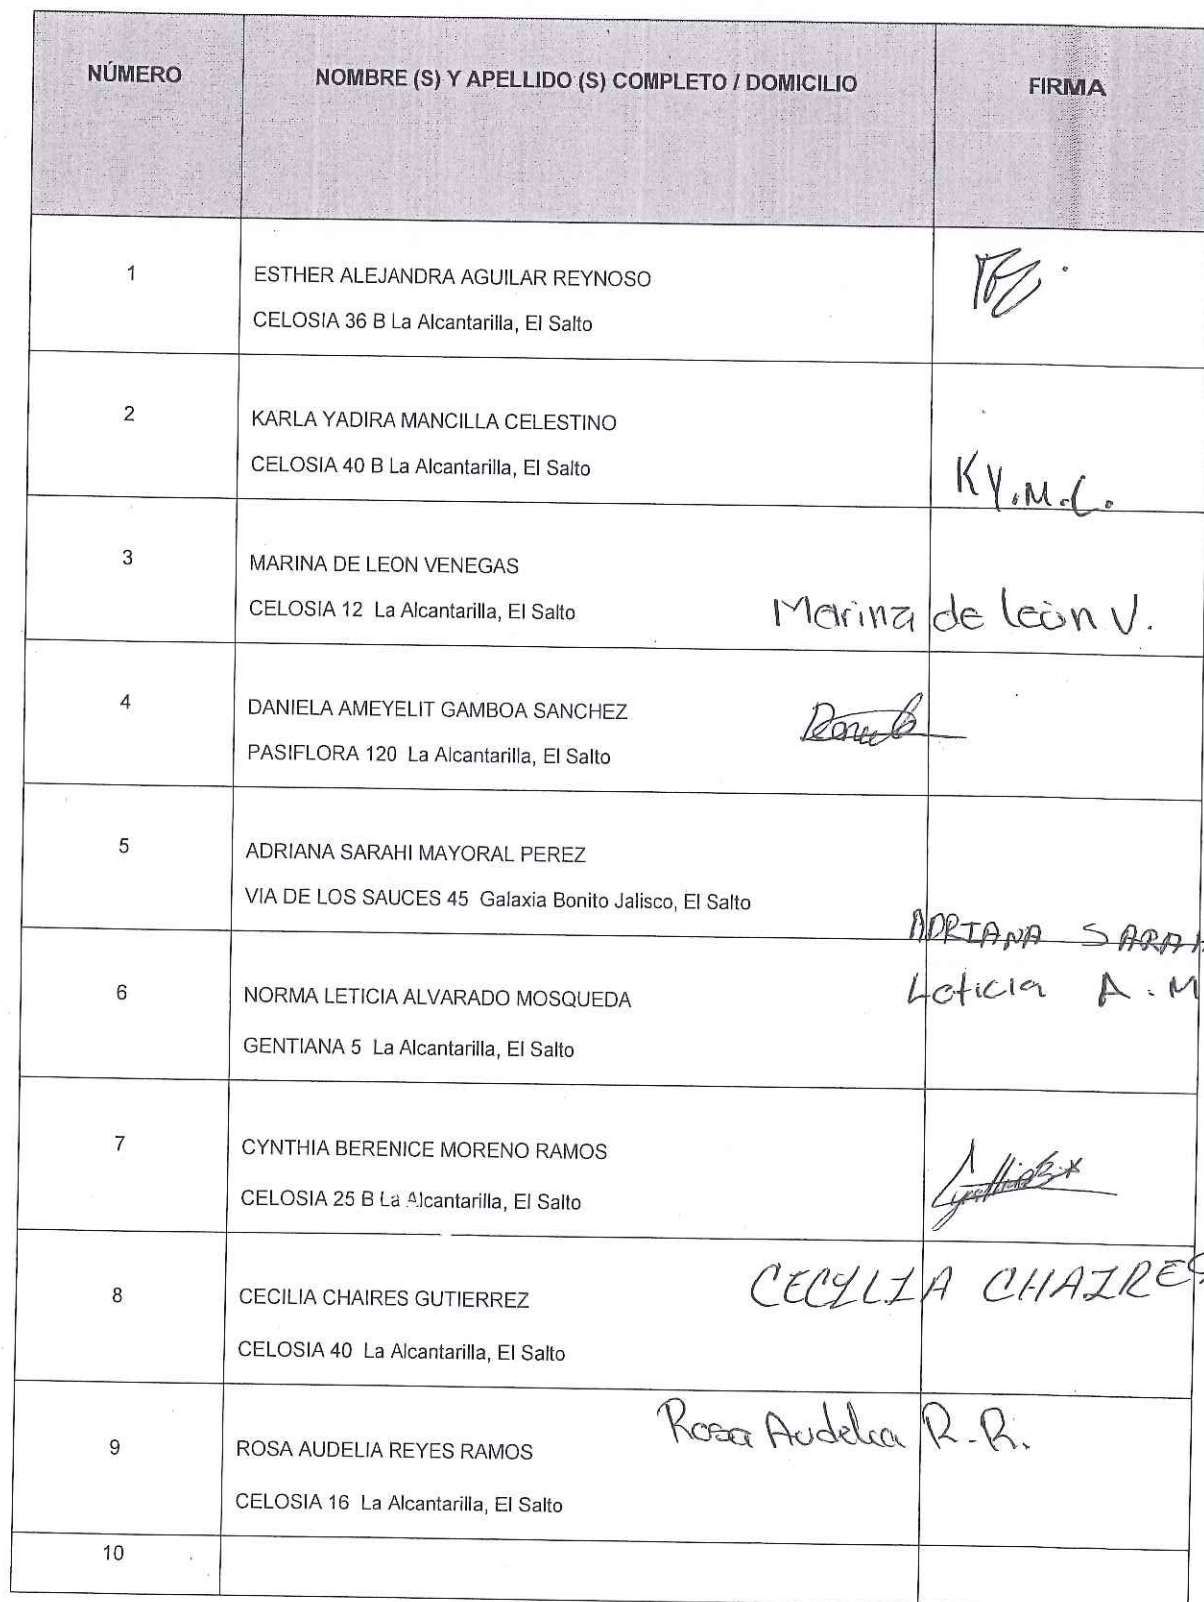 NÚMERO
NOMBRE (S) Y APELLIDO (S) COMPLETO / DOMICILIO
FIRMA
1
ESTHER ALEJANDRA AGUILAR REYNOSO
CELOSIA 36 B La Alcantarilla, El Salto
2
KARLA YADIRA MANCILLA CELESTINO
CELOSIA 40 B La Alcantarilla, El Salto
KY.M.C.
3
MARINA DE LEON VENEGAS
CELOSIA 12 La Alcantarilla, El Salto
Marina de león V.
4
DANIELA AMEYELIT GAMBOA SANCHEZ
PASIFLORA 120 La Alcantarilla, El Salto
5
ADRIANA SARAHI MAYORAL PEREZ
VIA DE LOS SAUCES 45 Galaxia Bonito Jalisco, El Salto
ADRIANA SARAH
6
NORMA LETICIA ALVARADO MOSQUEDA
GENTIANA 5 La Alcantarilla, El Salto
Leticia A.M
7
CYNTHIA BERENICE MORENO RAMOS
CELOSIA 25 B La Alcantarilla, El Salto
8
CECILIA CHAIRES GUTIERREZ
CELOSIA 40 La Alcantarilla, El Salto
CECILIA CHAIRES
9
ROSA AUDELIA REYES RAMOS
CELOSIA 16 La Alcantarilla, El Salto
Rosa Audelia R.R.
10